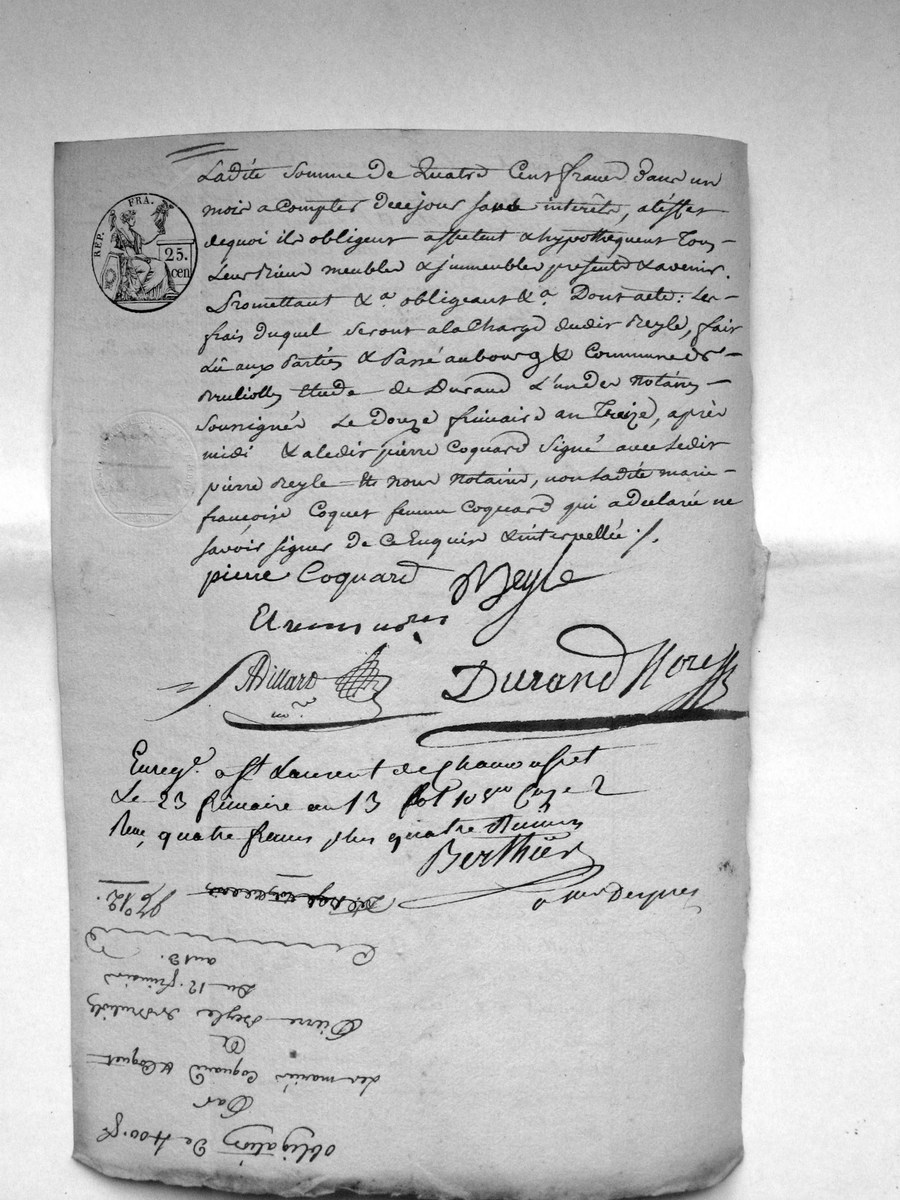 Ladite Somme de Quatre Cent francs dans un
mois a Compter dece jour sans interêts, a l'effet
dequoi ils obligent affectent & hypothequent Tous
Leurs Biens meubles & jmmeubles presents & avenir.
Promettant &a. obligeant &a. Dont acte: Les
frais duquel seront ala Charge dudit Reyle, fait
Lû aux Parties & Passé au bourg & Commune de
Brulliolles Etude de Durand L'un des Notaires
Soussignés Le Douze frimaire an Treize, après
midi & a ledit pierre Coquard Signé avec Ledit
pierre Reyle & Nous Notaires, non Ladite marie
françoise Coquet femme Coquard qui a declarée ne
savoir signer de Ce Enquise & interpellée ./.
pierre Coquard Reyle
Et nous nores
Billard Durand Nore
REP. FRA.
25.
cen
Enregé. a St Laurent de Chamousset
Le 23 frimaire an 13 fol 10 Caze 2
Reçu quatre francs plus quatre
Berthier
No 12.
an 13.
Du 12. frimaire
Pierre Reyle de Brulliolles
A
Les mariés Coquard & Coquet
Par
obligation De 400.f